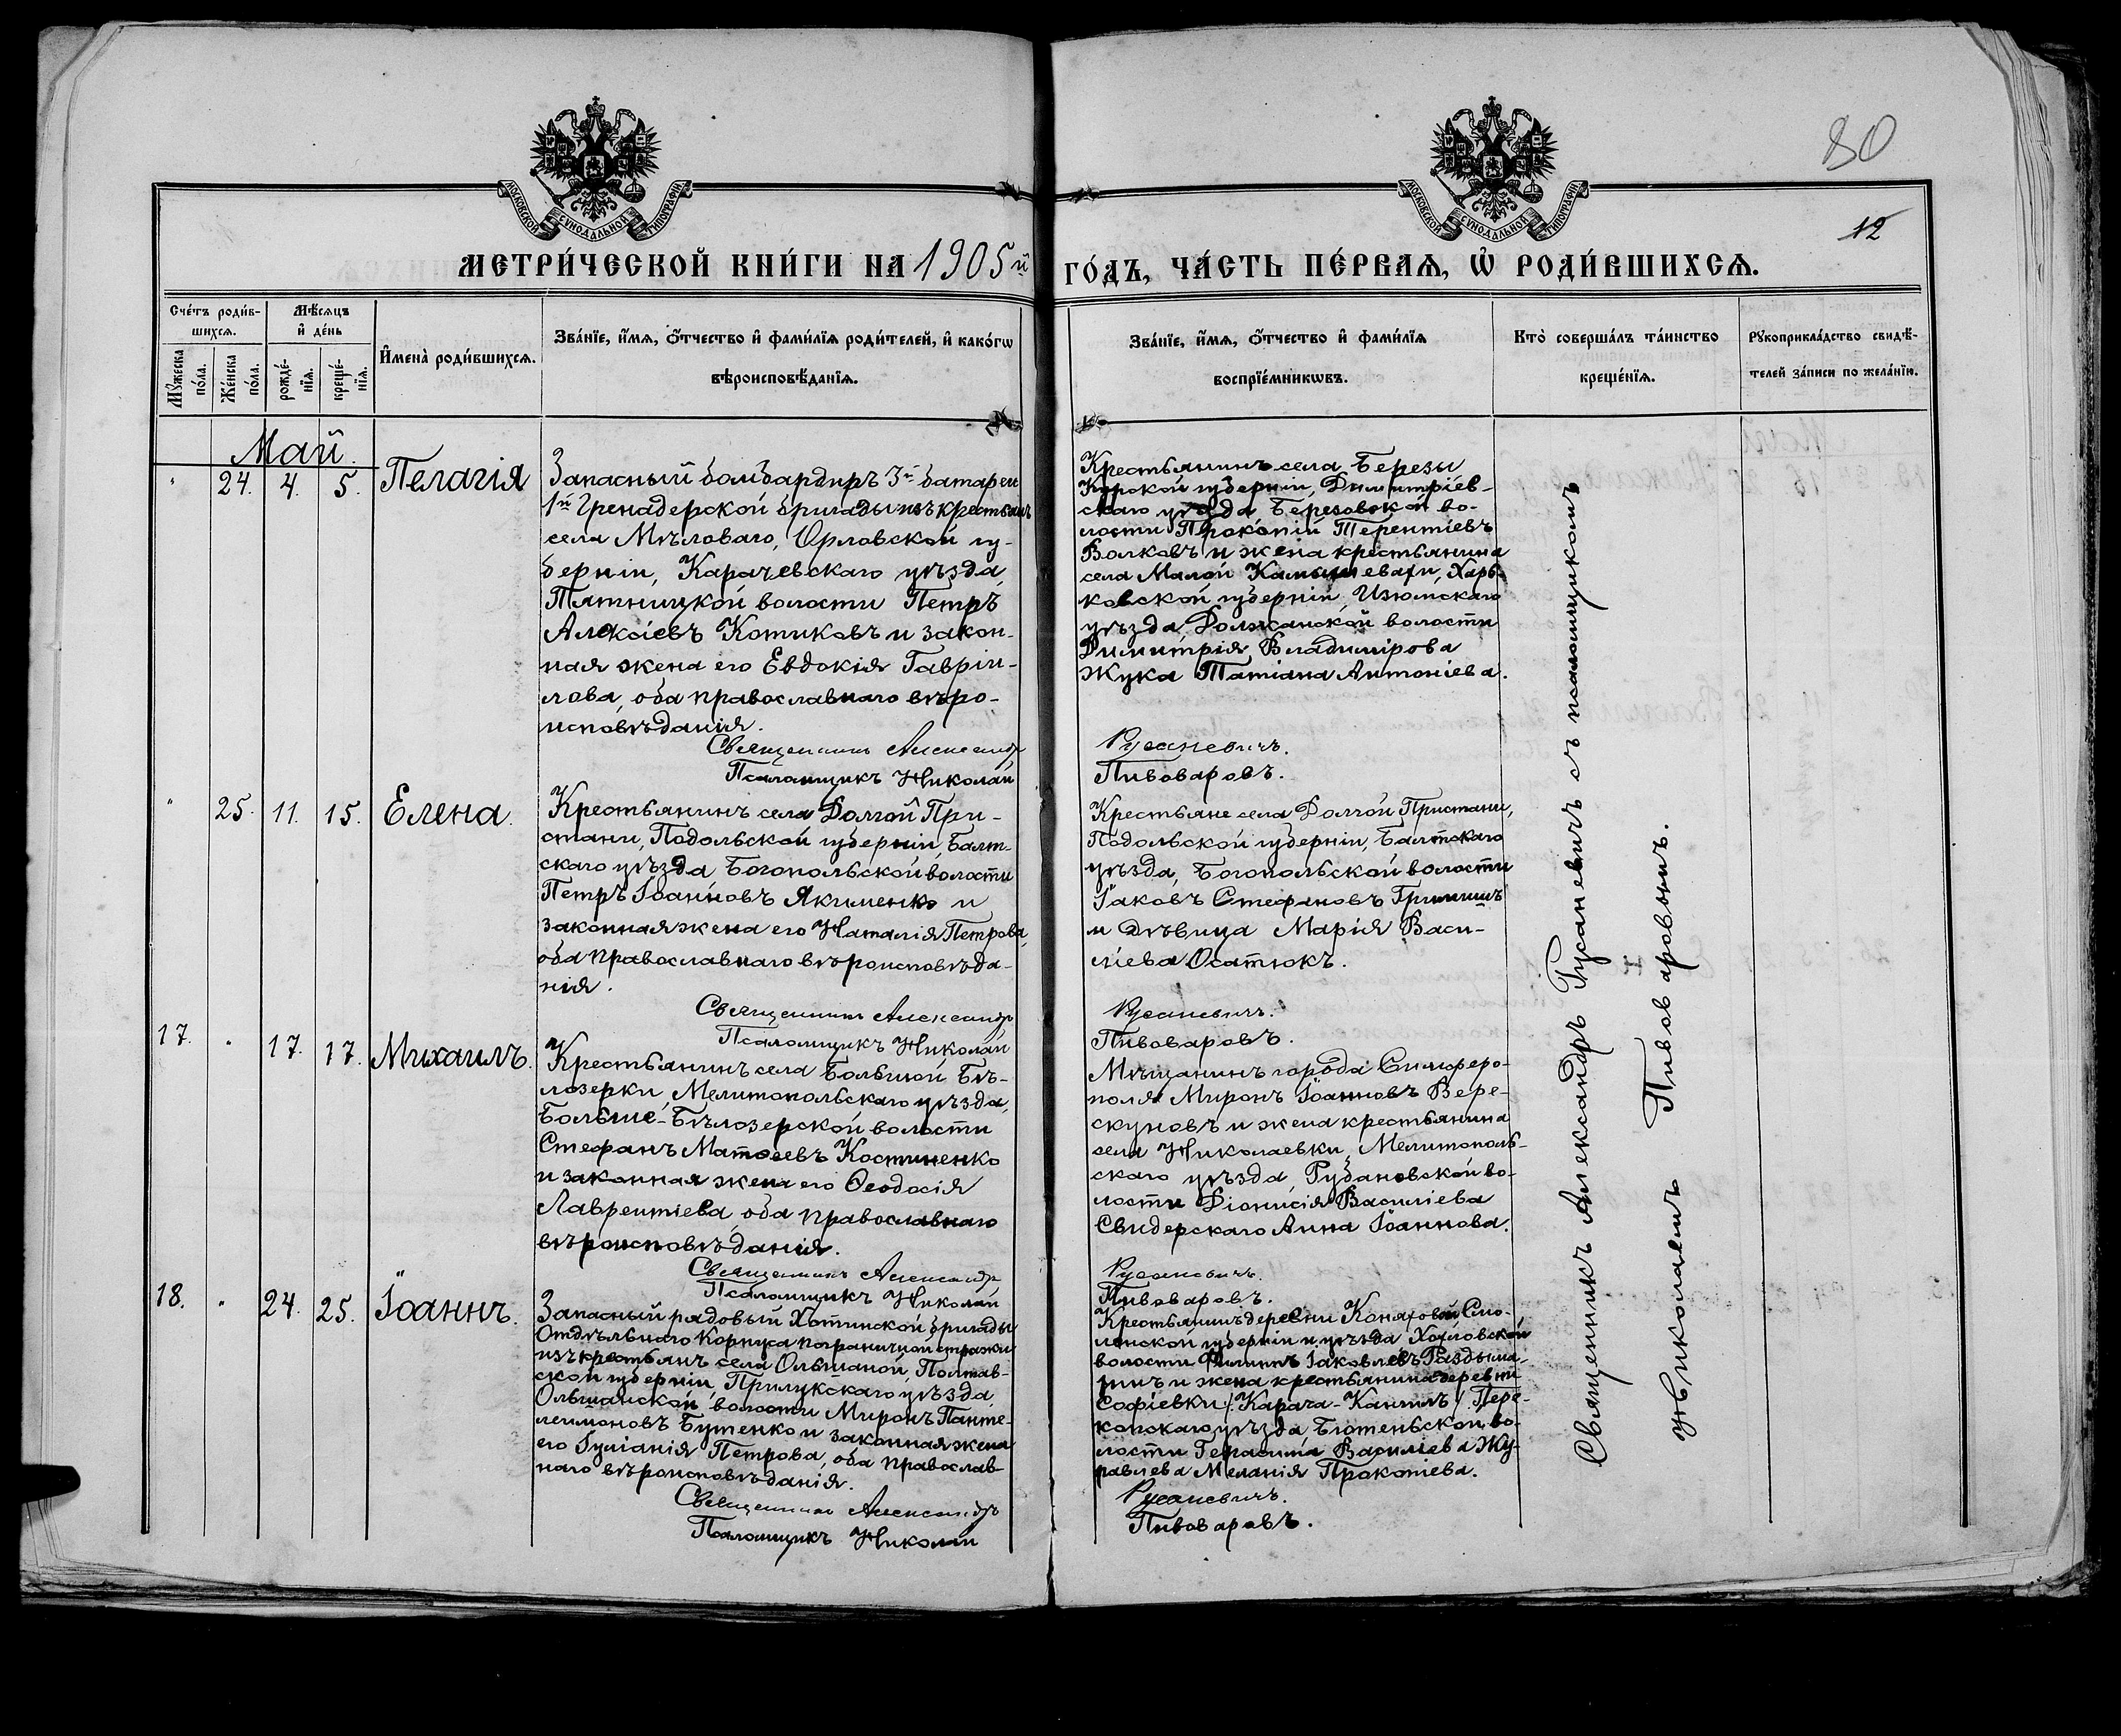 80
12
МОСКОВСКОЙ СѴНОДАЛЬНОЙ ТИПОГРАФІИ
МОСКОВСКОЙ СѴНОДАЛЬНОЙ ТИПОГРАФІИ
МЕТРИ́ЧЕСКОЙ КНИ́ГИ НА 1905й ГО́ДЪ, ЧА́СТЬ ПЕ́РВАѦ, Ѡ҆ РОДИ́ВШИХСѦ.
Сче́тъ роди́в-
шихсѧ.
Мѹ́жеска по́ла.
Же́нска по́ла.
Мѣ́сѧцъ
и҆ де́нь
рожде́-
нїѧ.
креще́-
нїѧ.
И҆мена̀ роди́вшихсѧ.
Зва́нїе, и҆́мѧ, ѻ҆́тчество и҆ фами́лїѧ роди́телей, и҆ како́гѡ
вѣроисповѣ́данїѧ.
Зва́нїе, и҆́мѧ, ѻ҆́тчество и҆ фами́лїѧ
воспрїе́мникѡвъ.
Кто̀ соверша́лъ та́инство
креще́нїѧ.
Рꙋкоприкла́дство свидѣ́-
телей за́писи по жела́нїю.
Май.
" 24. 4. 5. Пелагія
Запасный бомбардиръ 3й батареи
1й Гренадерской бригады изъ крестьянъ
села Мѣловаго, Орловской гу-
берніи, Карачевскаго уѣзда,
Пятницкой волости Петръ
Алексіевъ Котиковъ и закон-
ная жена его Евдокія Гаврі-
лова, оба православнаго вѣро-
исповѣданія.
Священникъ Александръ
Псаломщикъ Николай
Крестьянинъ села Березы
Курской губерніи, Димитріев-
скаго уѣзда Березовской во-
лости Прокопій Терентіевъ
Волковъ и жена крестьянина
села Малой Камышевахи, Харь-
ковской губерніи, Изюмскаго
уѣзда, Должанской волости
Димитрія Владимірова
Жука Татіана Антоніева.
Русаневичъ.
Пивоваровъ.
" 25. 11. 15. Елена.
Крестьянинъ села Долгой При-
стани, Подольской губерніи, Балт-
скаго уѣзда Богопольской волости
Петръ Іоанновъ Якименко и
законная жена его Наталія Петрова,
оба православнаго вѣроисповѣда-
нія.
Священникъ Александръ
Псаломщикъ Николай
Крестьяне села Долгой Пристани,
Подольской губерніи, Балтскаго
уѣзда, Богопольской волости
Іаковъ Стефановъ
и дѣвица Марія Васи-
ліева Осатюкъ.
Русаневичъ.
Пивоваровъ.
17. " 17. 17. Михаилъ.
Крестьянинъ села Большой Бѣ-
лозерки, Мелитопольскаго уѣзда,
Больше-Бѣлозерской волости
Стефанъ Матѳеевъ Костиненко
и законная жена его Ѳеодосія
Лаврентіева, оба православнаго
вѣроисповѣданія.
Священникъ Александръ
Псаломщикъ Николай
Мѣщанинъ города Симферо-
поля Миронъ Іоанновъ Вере-
скуновъ и жена крестьянина
села Николаевки, Мелитополь-
скаго уѣзда, Рубановской во-
лости Діонисія Василіева
Свидерскаго Анна Іоаннова.
Русаневичъ.
Пивоваровъ.
18. " 24. 25. Іоаннъ.
Запасный рядовый Хотинской бригады
Отдѣльнаго Корпуса пограничной стражи
изъ крестьянъ села Ольшаной, Полтав-
ской губерніи, Прилукскаго уѣзда,
Ольшанской волости Миронъ Панте-
леимоновъ Бутенко и законная жена
его Іуліанія Петрова, оба православ-
наго вѣроисповѣданія.
Священникъ Александръ
Псаломщикъ Николай
Крестьянинъ деревни Смо-
ленской губерніи и уѣзда Хохловской
волости Филиппъ Іаковлевъ
и жена крестьянина деревни
Софіевки /Карача-Кангилъ/ Пере-
копскаго уѣзда, Бютеньской во-
лости Герасима Василіева Жу-
равлева Меланія Прокопіева.
Русаневичъ.
Пивоваровъ.
Священникъ Александръ Русаневичъ съ псаломщикомъ
Николаемъ Пивоваровымъ.